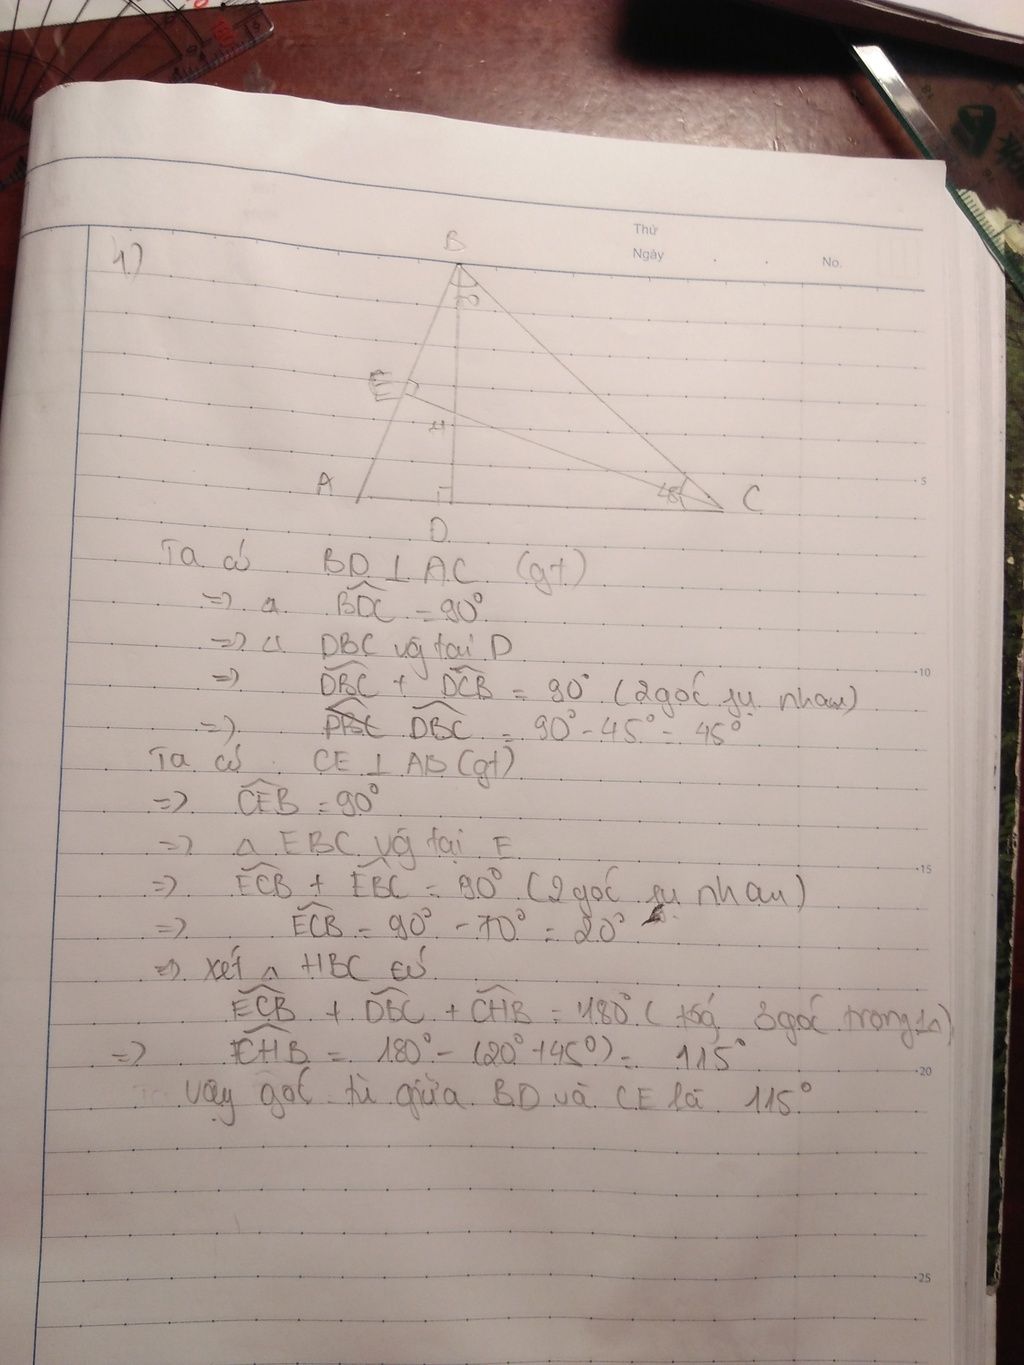 Thứ
Ngày . .
No.
1)
B
70
E
H
A
45
C
D
Ta có BD ⊥ AC (gt)
=> BDC = 90°
=> Δ DBC vg tại D
=> DBC + DCB = 90° (2 góc phụ nhau)
=> DBC DBC = 90° - 45° = 45°
Ta có CE ⊥ AB (gt)
=> CEB = 90°
=> Δ EBC vg tại E
=> ECB + EBC = 90° (2 góc phụ nhau)
=> ECB = 90° - 70° = 20°
=> xét Δ HBC có
ECB + DBC + CHB = 180° (tổg 3 góc trong 1 Δ)
=> CHB = 180° - (20° + 45°) = 115°
vậy góc tù giữa BD và CE là 115°
5
10
15
20
25